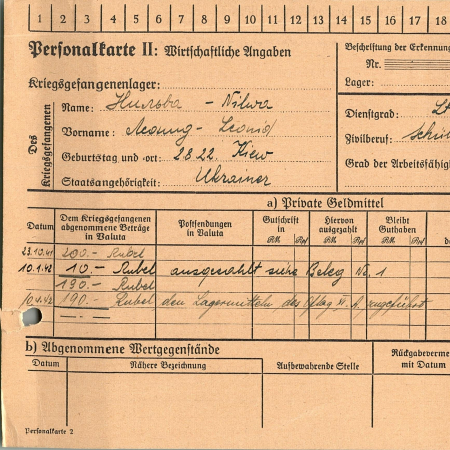 1 2 3 4 5 6 7 8 9 10 11 12 13 14 15 16 17 18
Personalkarte II: Wirtschaftliche Angaben
Beschriftung der Erkennung
Nr.
Kriegsgefangenenlager:
Lager:
Des Kriegsgefangenen
Name: Нильва - Nilwa
Vorname: Леонид - Leonid
Dienstgrad:
Geburtstag und -ort: 28.22. Kiew
Zivilberuf:
Staatsangehörigkeit: Ukrainer
Grad der Arbeitsfähig
a) Private Geldmittel
Datum
Dem Kriegsgefangenen abgenommene Beträge in Valuta
Postsendungen in Valuta
Gutschrift in RM Rpf
Hiervon ausgezahlt RM Rpf
Bleibt Guthaben RM Rpf
23.10.41 200.- Rubel
10.1.42 10.- Rubel ausgezahlt siehe Beleg No. 1
190.- Rubel
10.4.42 190.- Rubel den Lagermitteln des Oflag zugeführt
b) Abgenommene Wertgegenstände
Datum
Nähere Bezeichnung
Aufbewahrende Stelle
Rückgabeverme
mit Datum
Personalkarte 2